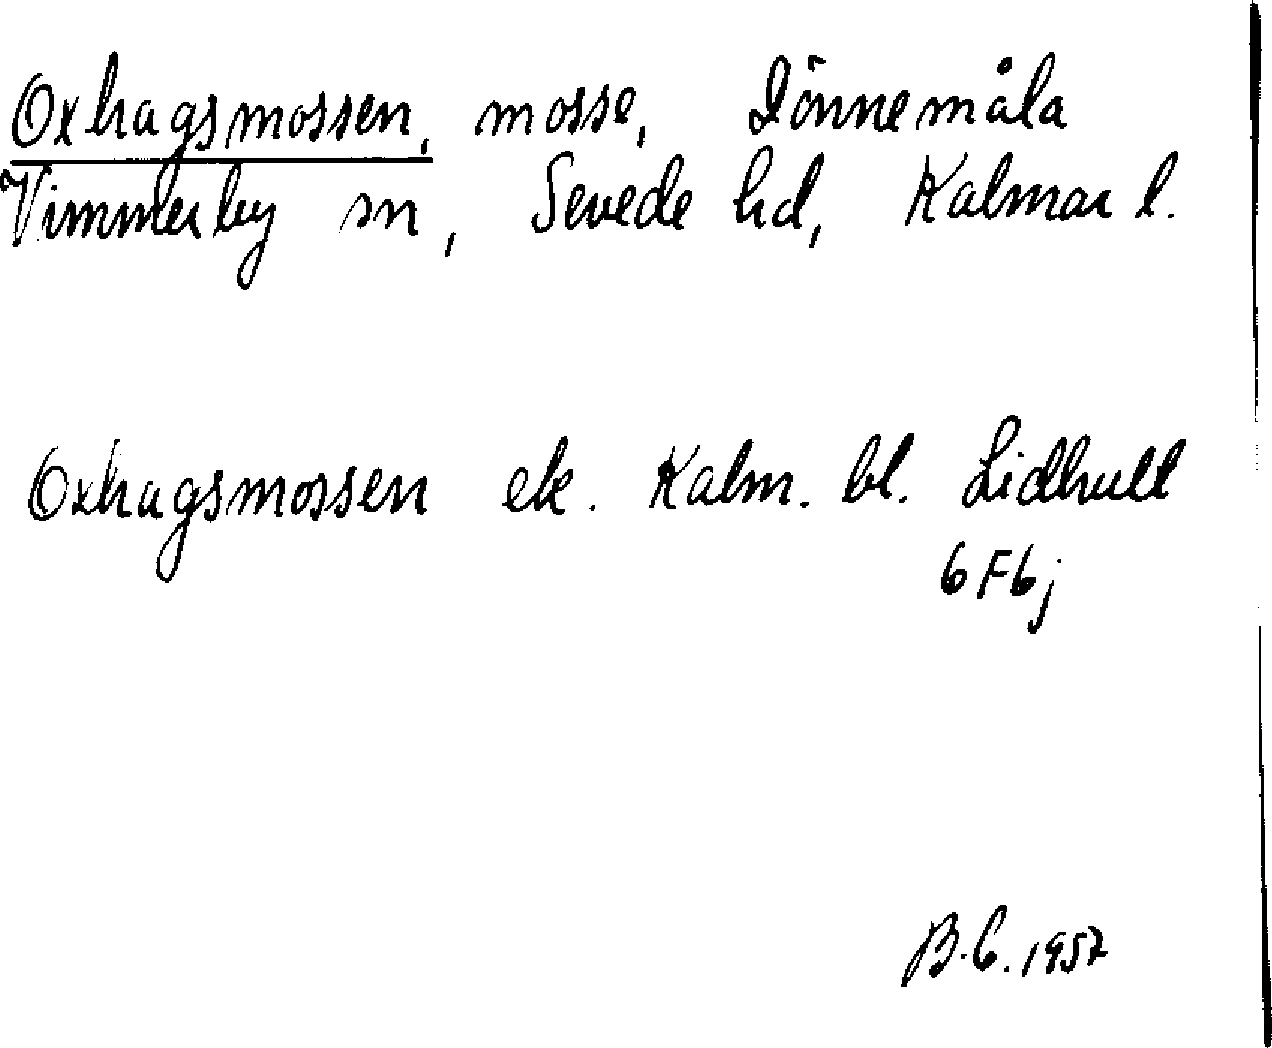 Oxhagsmossen, mosse, Dönnemåla
Vimmerby sn, Sevede hd, Kalmar l.
Oxhagsmossen ek. Kalm. bl. Lidhult
6F6j
B.C. 1957